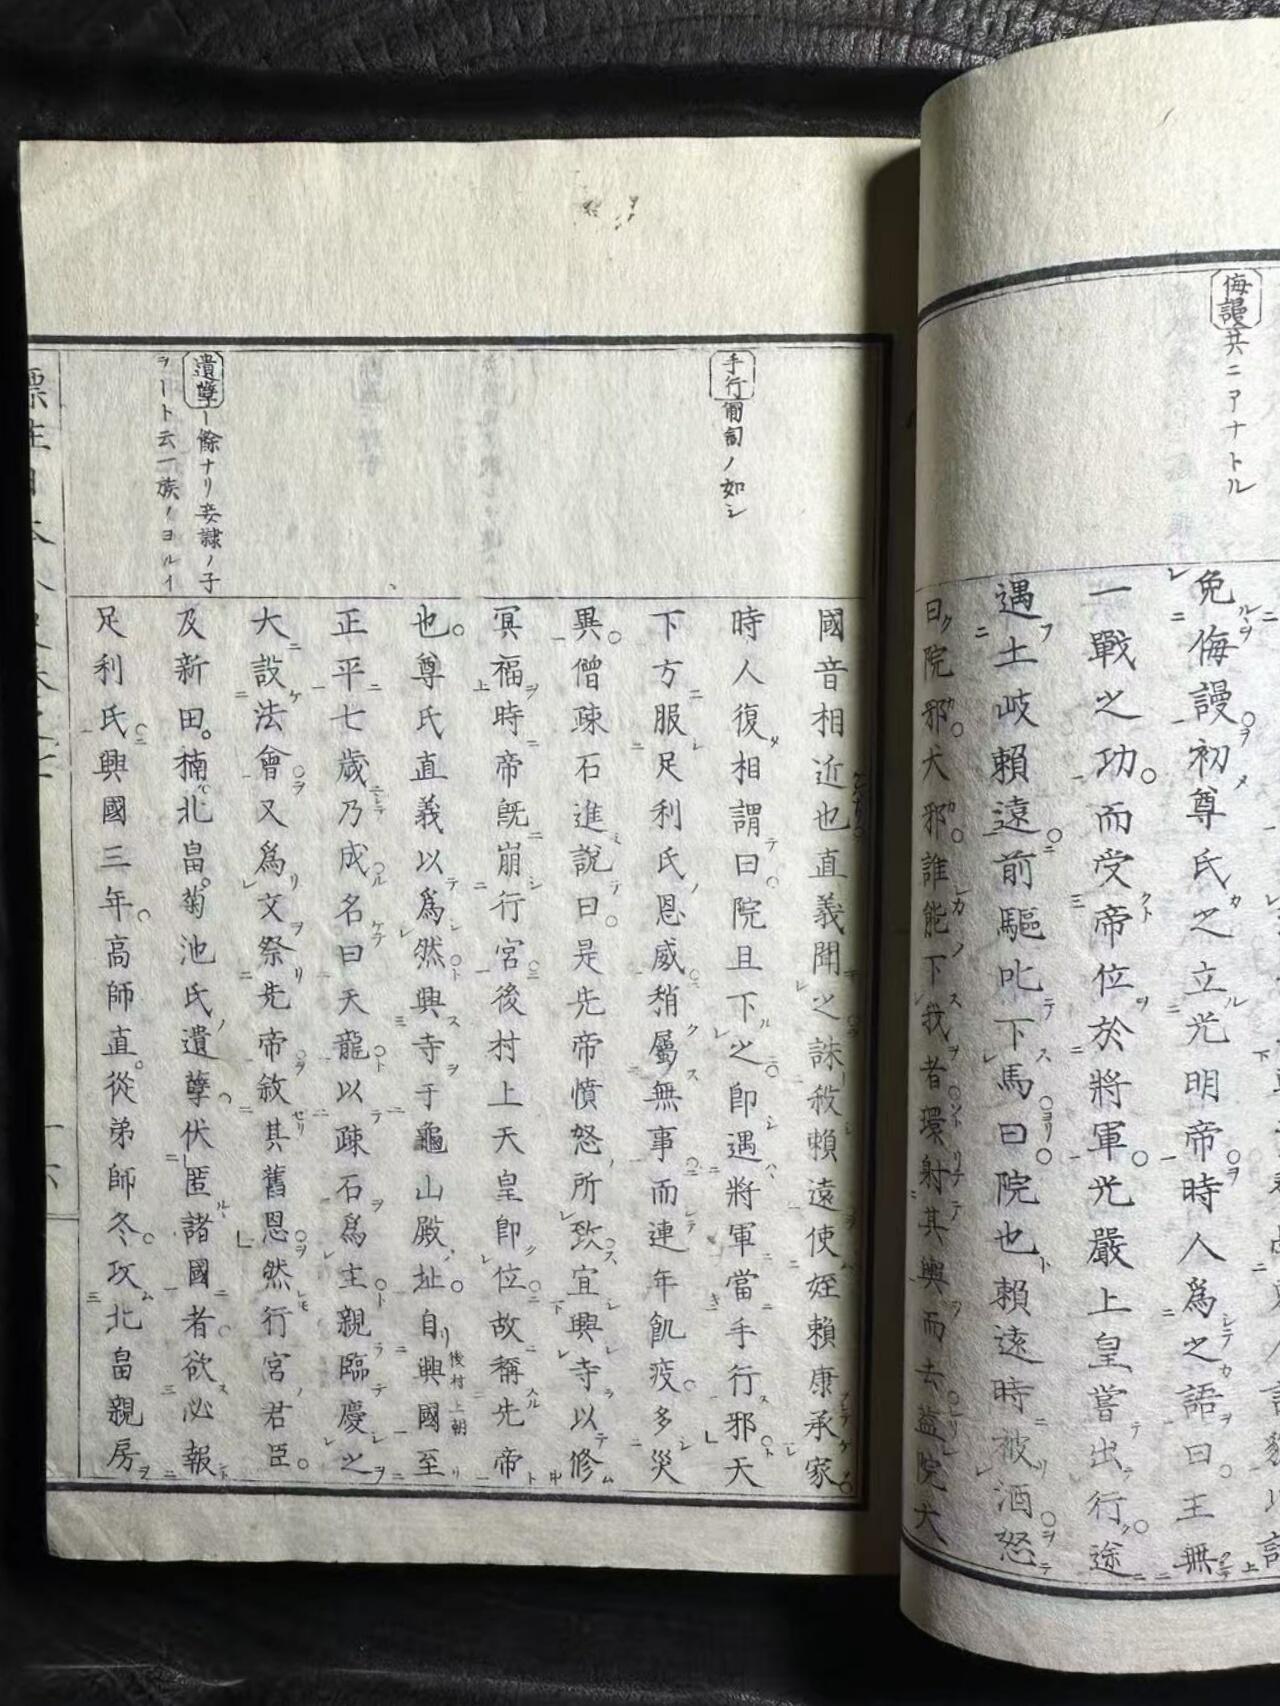 侮謾共ニアナトル
免侮謾初尊氏之立光明帝時人爲之語曰王無
一戰之功而受帝位於將軍光嚴上皇嘗出行途
遇土岐賴遠前驅叱下馬曰院也賴遠時被酒怒
曰院邪犬邪誰能下我者環射其輿而去蓋院犬
手行匍匐ノ如シ
遺孽ー餘ナリ妾隷ノ子
ヲート云一族ノヨルイ
國音相近也直義聞之誅殺賴遠使姪賴康承家
時人復相謂曰院且下之卽遇將軍當手行邪天
下方服足利氏恩威稍屬無事而連年飢疫多災
異僧疎石進說曰是先帝憤怒所致宜興寺以修
冥福時帝既崩行宮後村上天皇卽位故稱先帝
也尊氏直義以爲然興寺于龜山殿址自興國至
後村上朝
正平七歲乃成名曰天龍以疎石爲主親臨慶之
大設法會又爲文祭先帝敘其舊恩然行宮君臣
及新田楠北畠菊池氏遺孽伏匿諸國者欲必報
足利氏興國三年高師直從弟師冬攻北畠親房